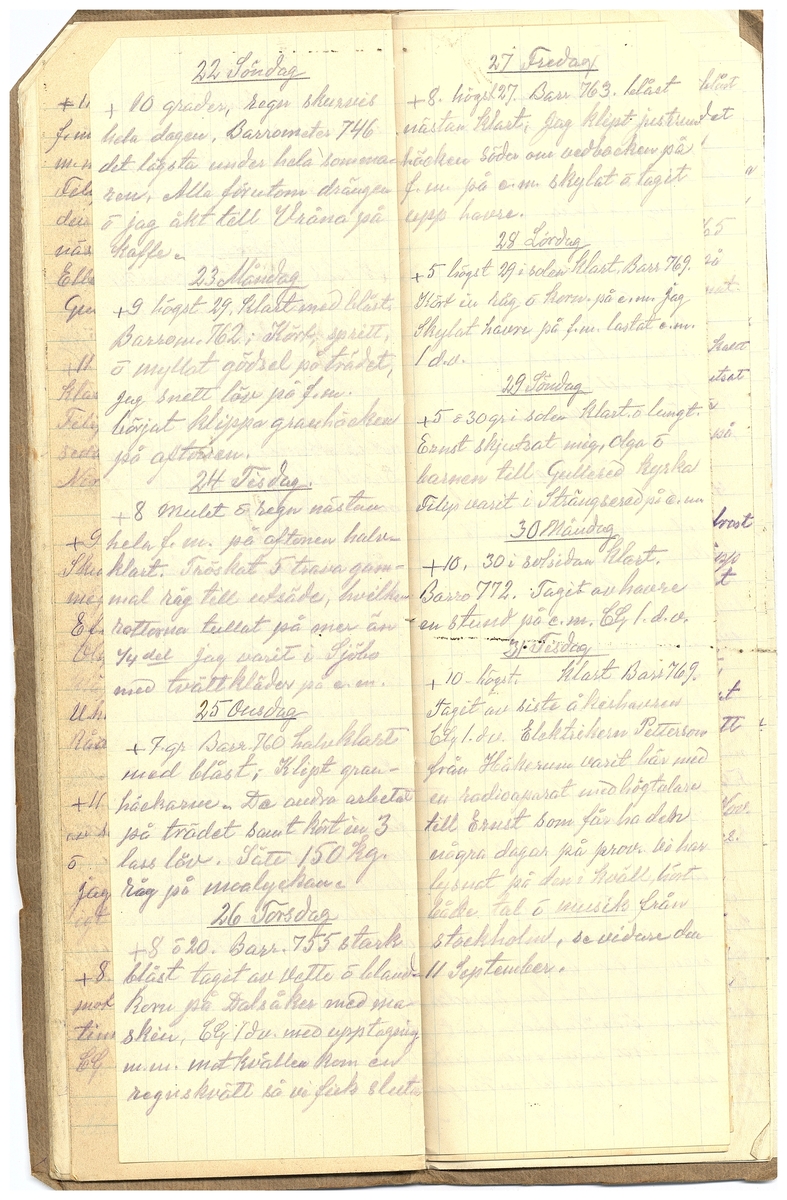 22 Söndag
+ 10 grader, regn skurvis
hela dagen, Barrometer 746
det lägsta under hela somma-
ren, Alla förutom drängen
o jag åkt till Vråna på
Kaffe.
23 Måndag
+9 högst 29, Klart med blåst.
Barrom. 762, Kört, spritt,
o myllat gödsel på trädet,
jag snett löv på f.m.
börjat klippa granhäcken
på aftonen.
24 Tisdag.
+8 Mulet o regn nästan
hela f.m. på aftonen halv-
klart. Tröskat 5 trava gam-
mal råg till utsäde, hvilken
rottorna tullat på mer än
1/4 del jag varit i Sjöbo
med tvättkläder på e.m.
25 Onsdag
+7 gr Barr. 760 halvklart
med blåst; Klipt gran-
häckarne. De andra arbetat
på trädet samt kört in 3
lass löv. Såte 150 kg.
råg på moalyckan.
26 Torsdag
+8 o 20. Barr. 755 stark
blåst tagit av vette o bland-
korn på Dalsåker med ma
skin, CG 1 dv. med upptagning
m.m. mot kvällen kom en
regnskvätt så vi fick sluta
27 Fredag
+8. högst 27. Barr 763. blåst
nästan klart; Jag klipt justrundet
häcken söder om vedbacken på
f.m. på e.m. skylat o tagit
upp havre.
28 Lördag
+5 högst 29 i solen klart, Barr 769.
Kört in råg o korn. på e.m. jag
Skylat havre på f.m. lastat e.m.
1 d.v.
29 Söndag
+5 o 30 gr i solen Klart o lungt.
Ernst skjutsat mig, Olga o
barnen till Gullered kyrka
Filip varit i Strängsered på e.m.
30 Måndag
+10. 30 i solsidan klart.
Barro 772. Tagit av havre
en stund på e.m. CG 1. d.v.
31 Tisdag
+10 högst. Klart Barr 769.
Tagit av siste åkerhavren
CG 1. dv. Elektrikern Petterson
från Håkerum varit här med
en radioaparat med högtalare
till Ernst som får ha den
några dagar på prov. Vi har
lysnat på den i kväll, hört
både tal o musik från
stockholm, se vidare den
11 September.